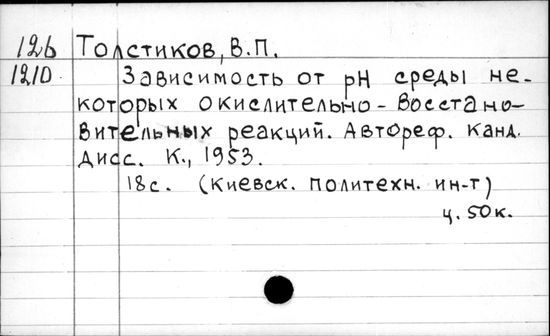 12б Толстиков, В.П.
121D Зависимость от pH среды не-
которых окислительно-восстано-
вительных реакций. Автореф. канд.
дисс. К., 1953.
18с. (Киевск. политехн. ин-т)
ц. 50к.